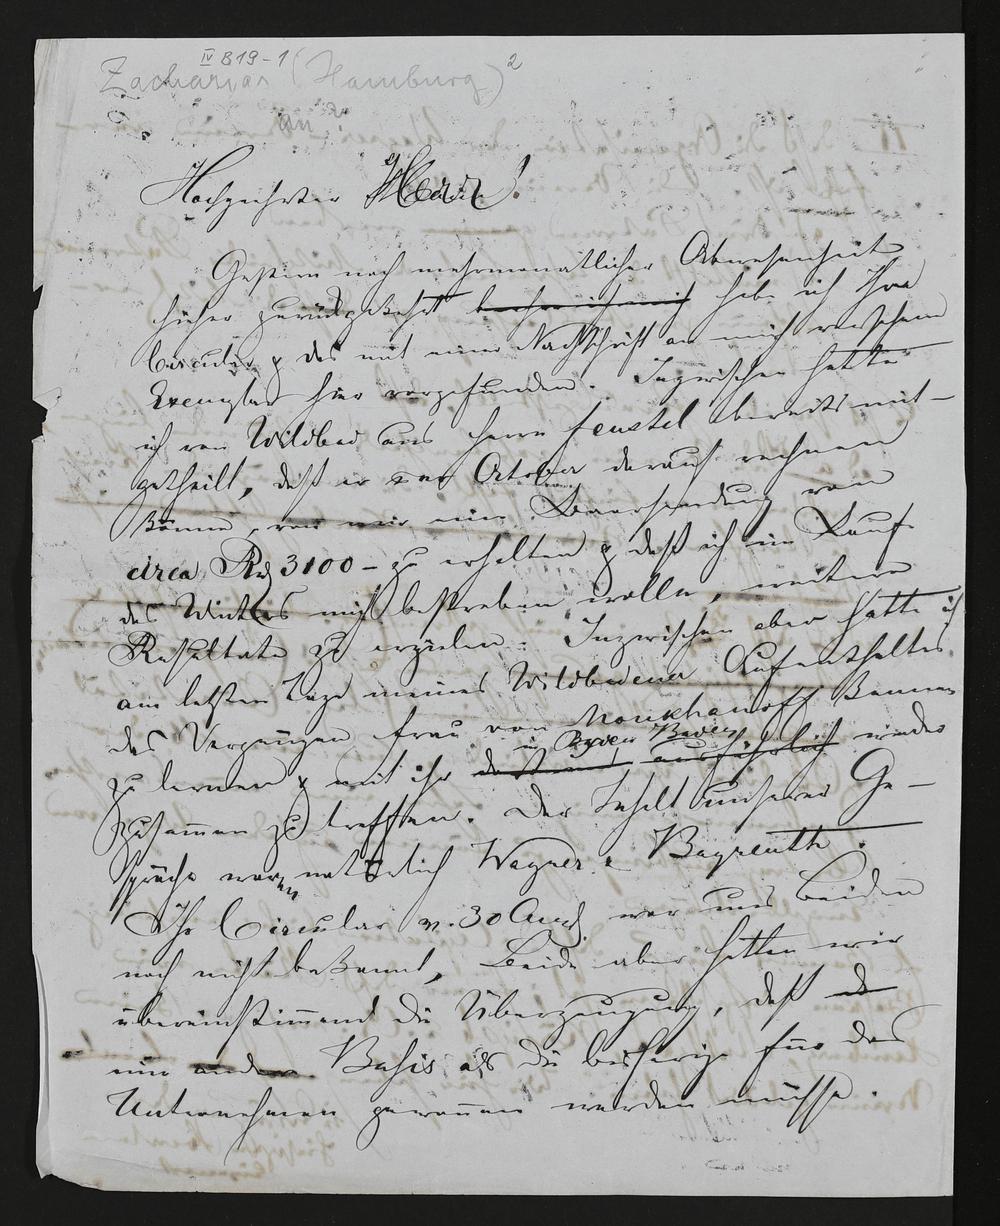 IV B 19-1
2
Zacharias (Hamburg)
an
Hochgeehrter Herr!
Gestern nach mehrmonatlicher Abwesenheit
hieher zurückgekehrt habe ich Ihre
Circulare & das mit einer Nachschrift an mich versehene
Exemplar hier vorgefunden. Inzwischen hatte
ich von Wildbad aus Herrn Feustel bereits mit-
getheilt, daß er per October darauf rechnen
könne, von mir eine Baarsendung von
circa Rℳ 3100 – zu erhalten & daß ich im Lauf
des Winters mich bestreben wolle, weitere
Resultate zu erzielen. Inzwischen aber hatte ich
am letzten Tage meines Wildbadener Aufenthaltes
das Vergnügen Frau von Moukhanoff kennen
in Baden Baden
zu lernen & mit ihr ausführlich wieder
zusammen zu treffen. Der Inhalt unserer Ge-
spräche waren natürlich Wagner & Bayreuth.
Ihr Circular v. 30 Aug. war uns Beiden
noch nicht bekannt, Beide aber hatten wir
übereinstimmend die Überzeugung, daß de
eine andere Basis als die bisherige für das
Unternehmen gewonnen werden müsse.